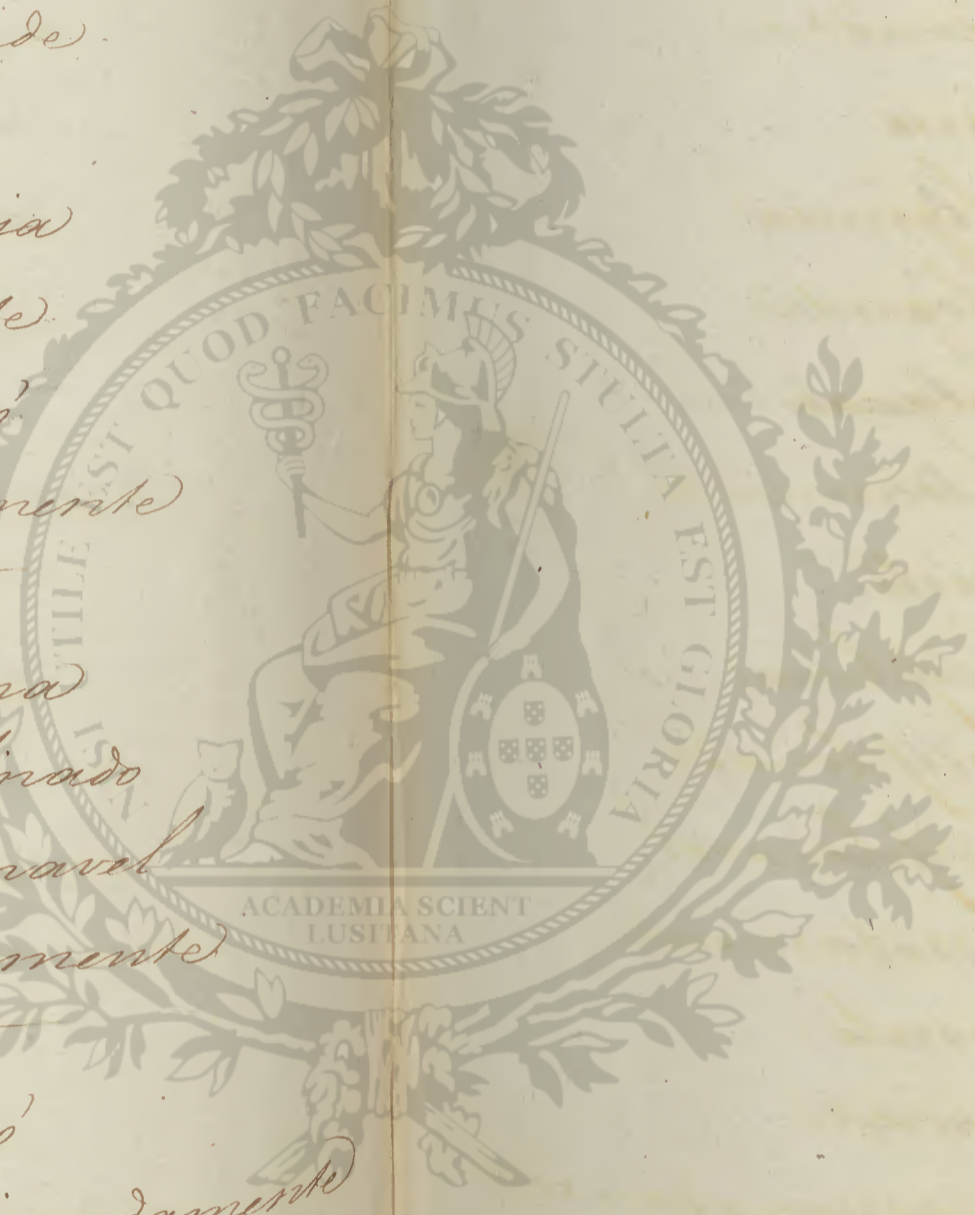 de
ia
te
mente
na
inado
navel
mente
damente
NISI UTILE EST QUOD FACIMUS STULTA EST GLORIA
ACADEMIA SCIENT
LUSITANA